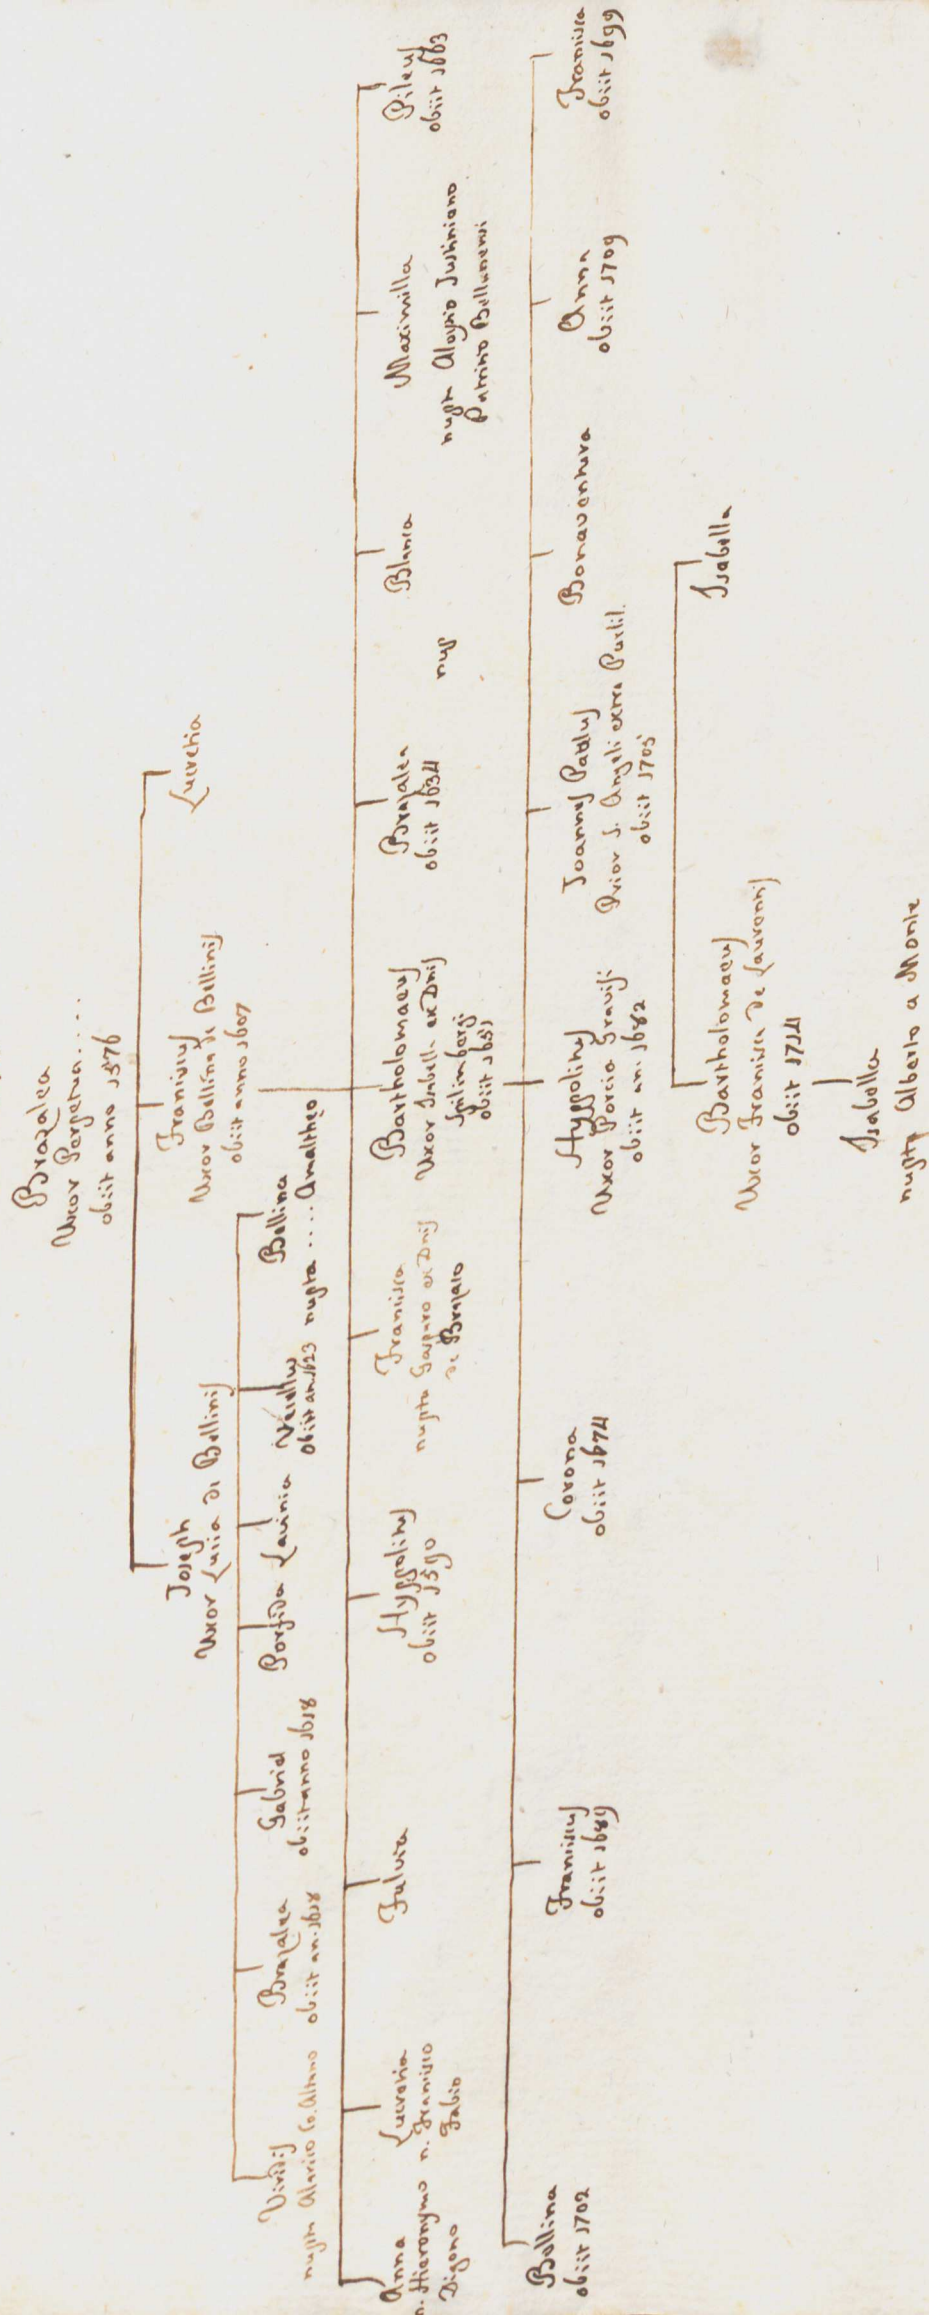 Brazalea
Uxor Perpetua....
obiit anno 1576
Joseph
Uxor Lucia di Bellinis
Franciscus
Uxor Bellina de Bellinis
obiit anno 1607
Lucretia
Viridis
nupta Alarico Co. Altano
Brazalea
obiit an. 1618
Gabriel
obiit anno 1618
Porfida
Lavinia
obiit an. 1623
Bellina
nupta .... Amaltheo
Anna
n. Hieronymo
Digono
Lucretia
n. Francisco
Fabio
Fulvia
Hyppolitus
obiit 1590
Francisca
nupta Gasparo ex Dnis
de Brazaco
Bartholomaeus
Uxor Isabella ex Dnis
Spilimbergi
obiit 1651
Brazalea
obiit 1634
Blanca
nup
Maximilla
nupta Aloysio Justiniano
Patritio Bellunensi
Pileus
obiit 1663
Bellina
obiit 1702
Franciscus
obiit 1689
Corona
obiit 1674
Hyppolitus
Uxor Porcia Gravisi
obiit an. 1682
Joannes Paulus
Prior S. Angeli extra Portil.
obiit 1705
Bonaventura
Anna
obiit 1709
Francisca
obiit 1699
Bartholomaeus
Uxor Francisca de Laurentis
obiit 1714
Isabella
Isabella
nupta Alberto a Monte